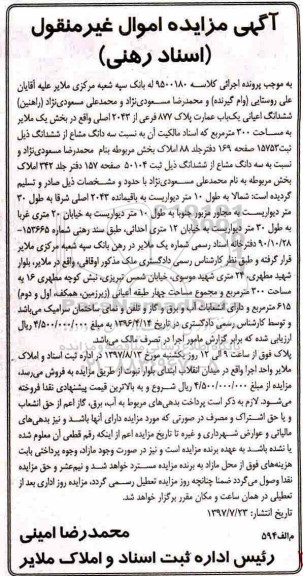 آگهی مزایده اموال غیرمنقول
(اسناد رهنی)
به موجب پرونده اجرائی کلاسه ۹۵۰۰۱۸۰ له بانک سپه شعبه مرکزی ملایر علیه آقایان
علی روستایی (وام گیرنده) و محمدرضا مسعودی‌نژاد و محمدعلی مسعودی‌نژاد (راهنین)
ششدانگ اعیانی یک‌باب عمارت پلاک ۸۷۷ فرعی از ۲۰۴۳ اصلی واقع در بخش یک ملایر
به مساحت ۳۰۰ مترمربع که اسناد مالکیت آن به نسبت سه دانگ مشاع از ششدانگ ذیل
ثبت۱۵۷۵۳ صفحه ۱۶۹ دفترجلد ۸۸ املاک بخش مربوطه بنام محمدرضا مسعودی‌نژاد و
نسبت به سه دانگ مشاع از ششدانگ ذیل ثبت ۵۰۱۰۴ صفحه ۱۵۷ دفتر جلد ۳۴۲ املاک
بخش مربوطه به نام محمدعلی مسعودی‌نژاد با حدود و مشخصات ذیل صادر و تسلیم
گردیده است: شمالا به طول ۱۰ متر دیواریست به باقیمانده ۲۰۴۳ اصلی شرقا به طول ۳۰
متر دیواریست به مجاور مزبور جنوبا به طول ۱۰ متر دیواریست به خیابان ۲۰ متری غربا
به طول ۳۰ متر دیواریست به خیابان ۱۲ متری احداثی، طبق سند رهنی شماره ۱۵۳۶۶۵-
۹۰/۱۰/۲۸ دفترخانه اسناد رسمی شماره یک ملایر در رهن بانک سپه شعبه مرکزی ملایر
قرار گرفته و طبق نظر کارشناس رسمی دادگستری ملک مذکور اوقافی، واقع در ملایر، بلوار
شهید مطهری، ۲۴ متری شهید موسوی، خیابان شمس تبریزی، نبش کوچه مطهری ۱۶ به
مساحت ۳۰۰ مترمربع و مجموع مساحت چهار طبقه اعیانی (زیرزمین، همکف، اول و دوم)
۶۱۵ مترمربع و دارای انشعابات آب و برق و گاز و تلفن و نمای ساختمان سرامیک می‌باشد
و توسط کارشناس رسمی دادگستری در تاریخ ۱۳۹۶/۴/۱۴ به مبلغ ۴/۵۰۰/۰۰۰/۰۰۰ ریال
ارزیابی شده که برابر گزارش مامور اجرا در تصرف مالک می‌باشد.
پلاک فوق از ساعت ۹ الی ۱۲ روز یکشنبه مورخ ۱۳۹۷/۸/۱۳ در اداره ثبت اسناد و املاک
ملایر واحد اجرا واقع در میدان انقلاب ابتدای بلوار نبوت از طریق مزایده به فروش می‌رسد،
مزایده از مبلغ ۴/۵۰۰/۰۰۰/۰۰۰ ریال شروع و به بالاترین قیمت پیشنهادی نقدا فروخته
می‌شود، لازم به ذکر است پرداخت بدهی‌های مربوط به آب، برق، گاز اعم از حق انشعاب
و یا حق اشتراک و مصرف در صورتی که مورد مزایده دارای آنها باشد و نیز بدهی‌های
مالیاتی و عوارض شهرداری و غیره تا تاریخ مزایده اعم از اینکه رقم قطعی آن معلوم شده
یا نشده باشد به عهده برنده مزایده است و نیز در صورت وجود مازاد، وجوه پرداختی بابت
هزینه‌های فوق از محل مازاد به برنده مزایده مسترد خواهد شد و نیم‌عشر و حق مزایده
نقدا وصول می‌گردد ضمنا چنانچه روز مزایده تعطیل رسمی گردد، مزایده روز اداری بعد از
تعطیلی در همان ساعت و مکان مقرر برگزار خواهد شد.
تاریخ انتشار: ۱۳۹۷/۷/۲۳
م‌الف۵۹۴
محمدرضا امینی
رئیس اداره ثبت اسناد و املاک ملایر